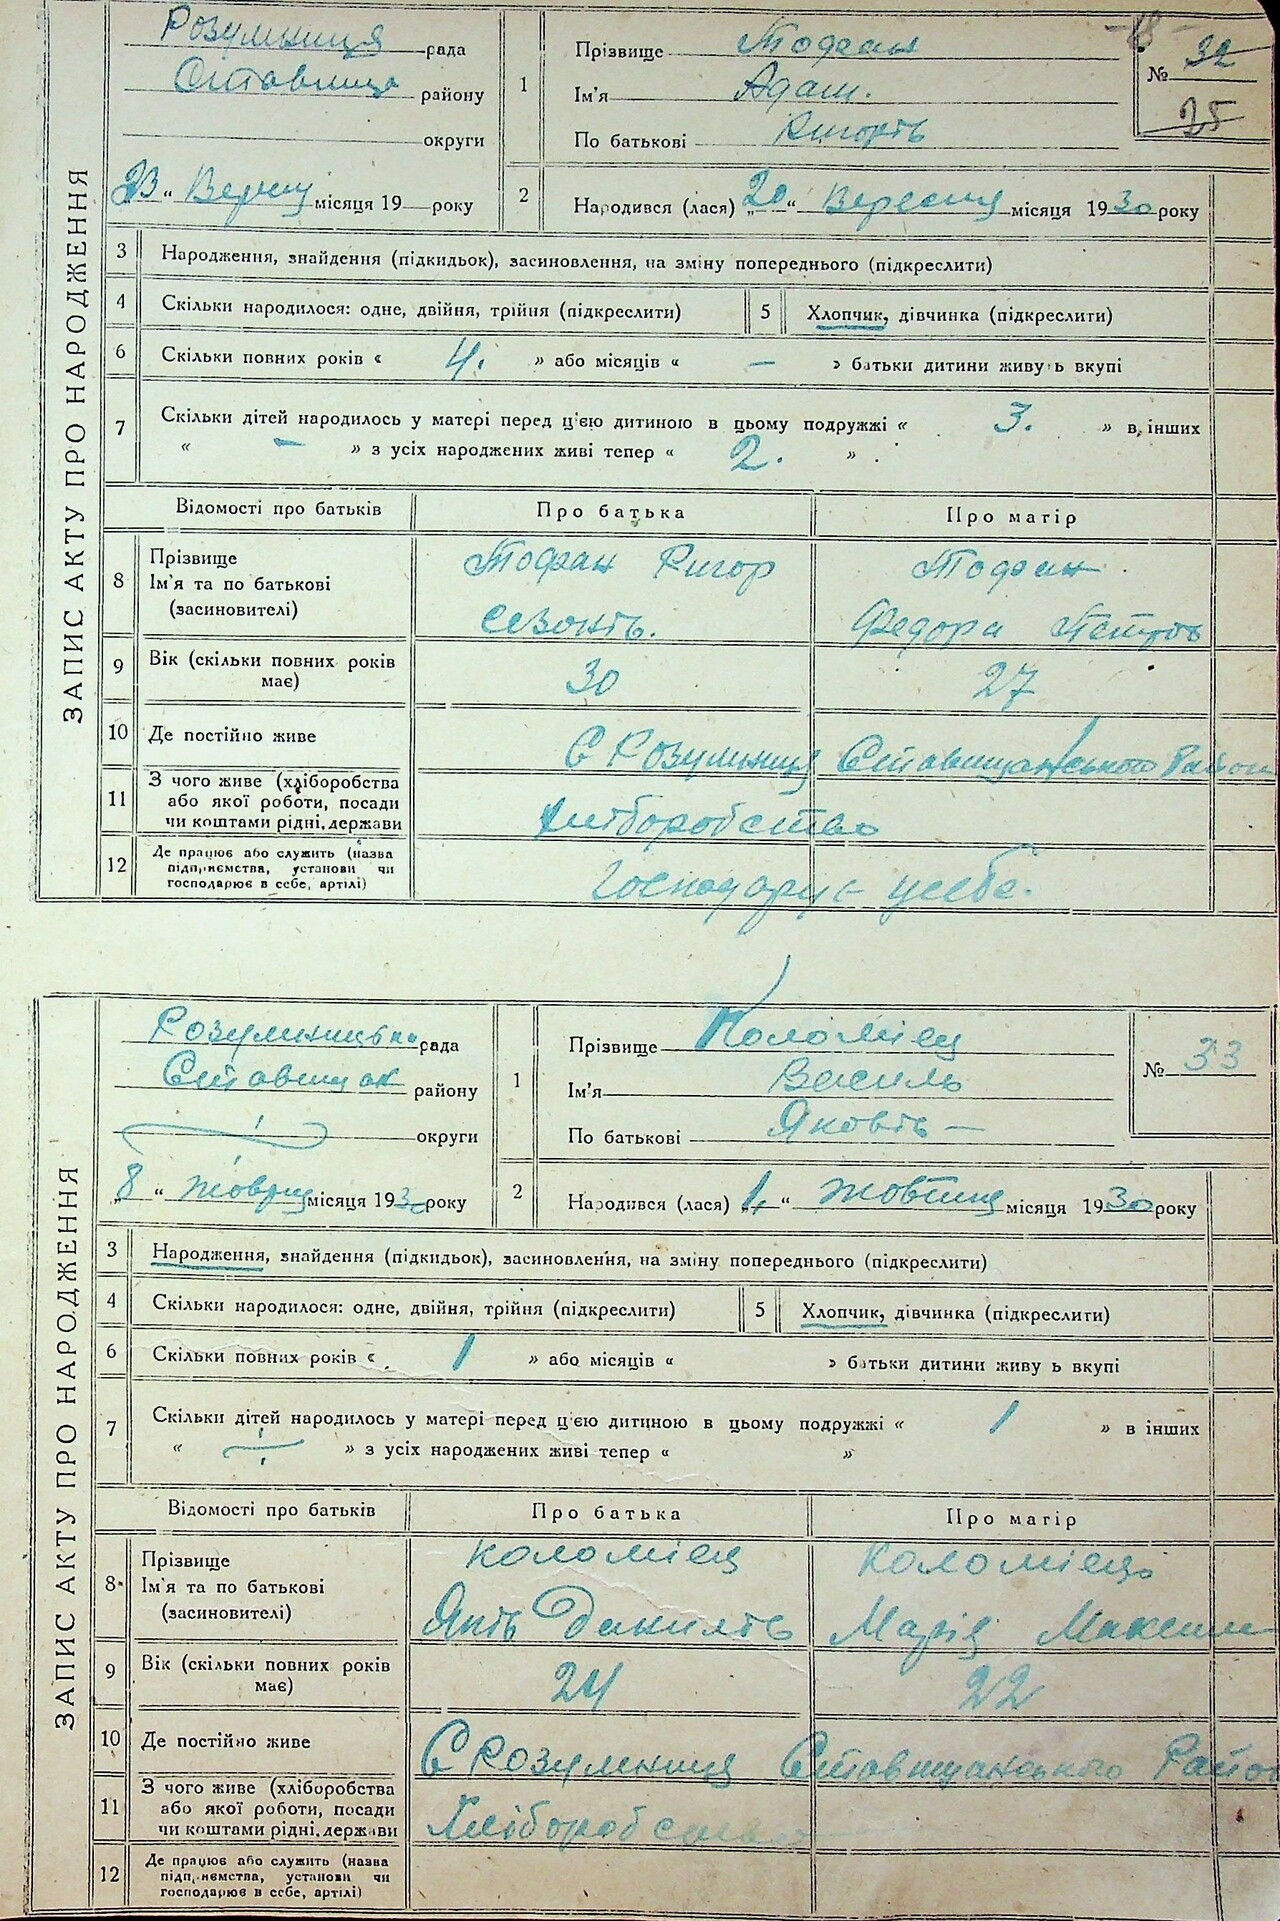 ЗАПИС АКТУ ПРО НАРОДЖЕННЯ
Розумниця рада
Ставище району
округи
23 " Верниц місяця 19 — року
1
Прізвище Тофан
Ім'я Адам.
По батькові Ригорів
№ 32
25
2
Народився (лася) „20“ Вересня місяця 1930 року
3 Народження, знайдення (підкидьок), засиновлення, на зміну попереднього (підкреслити)
4 Скільки народилося: одне, двійня, трійня (підкреслити) 5 Хлопчик, дівчинка (підкреслити)
6 Скільки повних років « 4. » або місяців « — » батьки дитини живуть вкупі
7 Скільки дітей народилось у матері перед ц'ею дитиною в цьому подружжі « 3. » в інших
« — » з усіх народжених живі тепер « 2. » .
Відомості про батьків Про батька Про матір
8 Прізвище Ім'я та по батькові (засиновителі)
Тофан Ригор
Сезонів.
Тофан
Федора Петрів
9 Вік (скільки повних років має) 30 27
10 Де постійно живе С Розумниця Ставищанського Район
11 З чого живе (хліборобства або якої роботи, посади чи коштами рідні, держави Хліборобство
12 Де працює або служить (назва підприємства, установи чи господарює в себе, артілі) Господарує усебе.
ЗАПИС АКТУ ПРО НАРОДЖЕННЯ
Розумницька рада
Ставищан району
округи
„8 “ жовтня місяця 1930 року
1
Прізвище Коломієц
Ім'я Василь
По батькові Яковів —
№ 33
2
Народився (лася) „1“ жовтня місяця 1930 року
3 Народження, знайдення (підкидьок), засиновлення, на зміну попереднього (підкреслити)
4 Скільки народилося: одне, двійня, трійня (підкреслити) 5 Хлопчик, дівчинка (підкреслити)
6 Скільки повних років « 1 » або місяців « » батьки дитини живуть вкупі
7 Скільки дітей народилось у матері перед ц'ею дитиною в цьому подружжі « 1 » в інших
« — » з усіх народжених живі тепер « »
Відомості про батьків Про батька Про матір
8 Прізвище Ім'я та по батькові (засиновителі)
Коломієц
Яків Данилів
Коломієць
Марія Максим
9 Вік (скільки повних років має) 24 22
10 Де постійно живе С Розумниця Ставищанського Район
11 З чого живе (хліборобства або якої роботи, посади чи коштами рідні, держави Хліборобство
12 Де працює або служить (назва підприємства, установи чи господарює в себе, артілі)